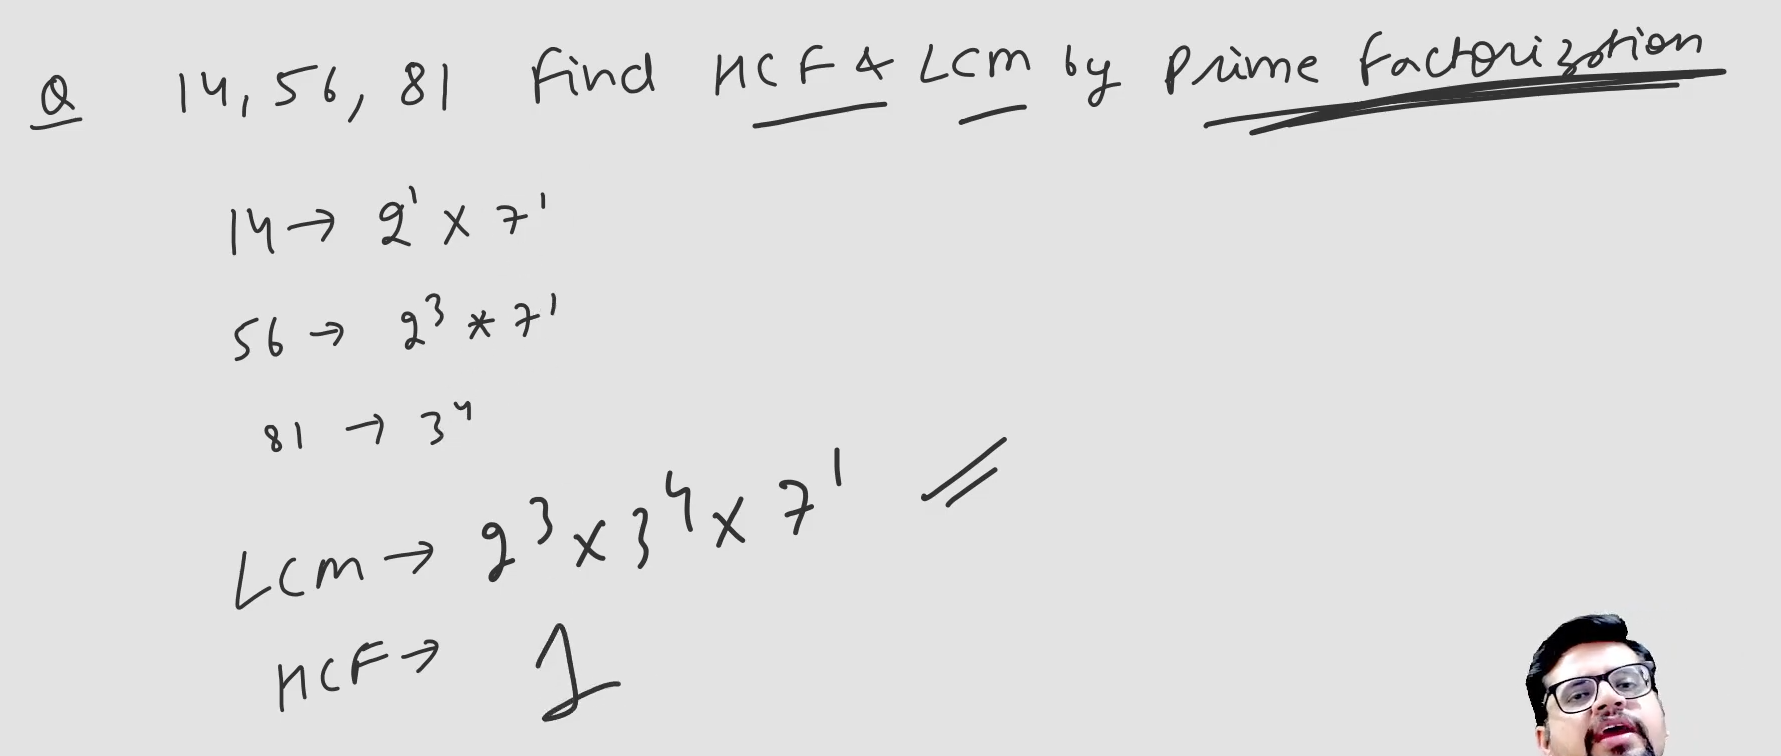 Q 14, 56, 81 Find HCF & LCM by Prime Factorization
14 → 2¹ × 7¹
56 → 2³ * 7¹
81 → 3⁴
LCM → 2³ × 3⁴ × 7¹
HCF → 1